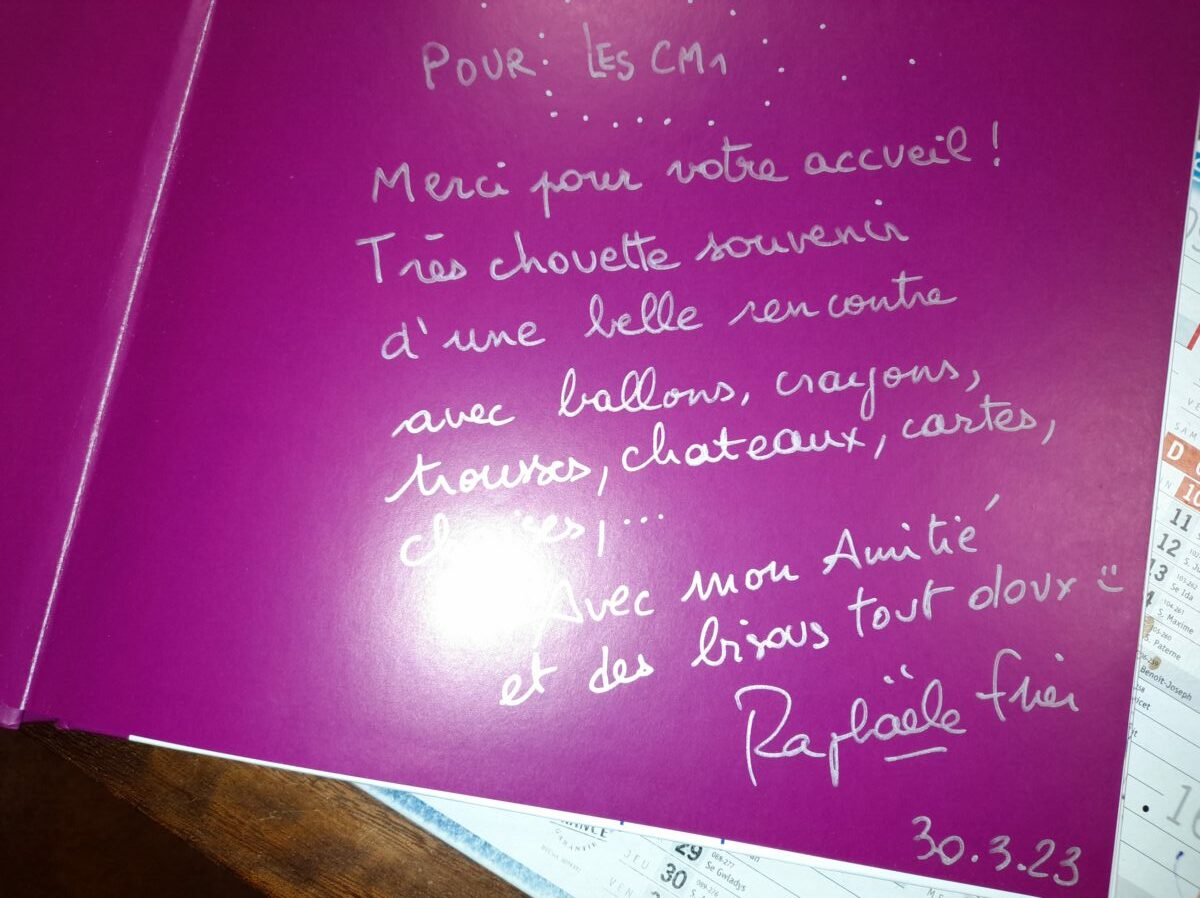 POUR LES CM1
Merci pour votre accueil !
Très chouette souvenir
d'une belle rencontre
avec ballons, crayons,
trousses, chateaux, cartes,
...
Avec mon Amitié
et des bisous tout doux
Raphaële Frier
30.3.23
D
10
11
12
13
Se Ida
S. Maxime
S. Paterne
Benoît-Joseph
29
Se Gwladys
JEU
30
VEN